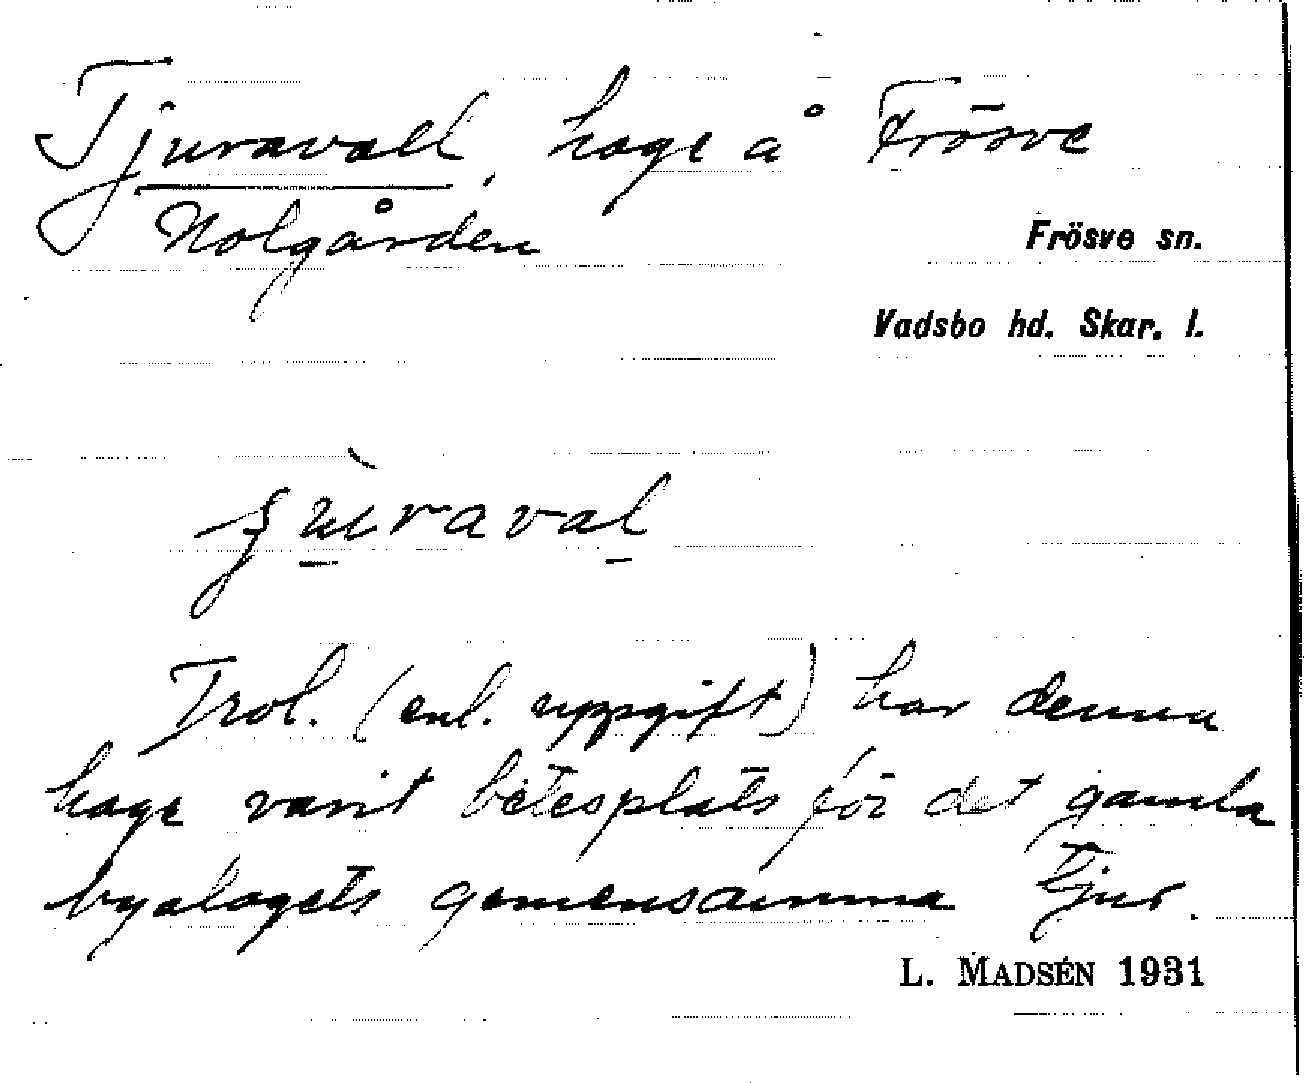 Tjuravall, hage å Frösve
Nolgården
Frösve sn.
Vadsbo hd. Skar. l.
Trol. (enl. uppgift) har denna
hage varit betesplats för det gamla
byalagets gemensamma tjur.
L. MADSÉN 1931